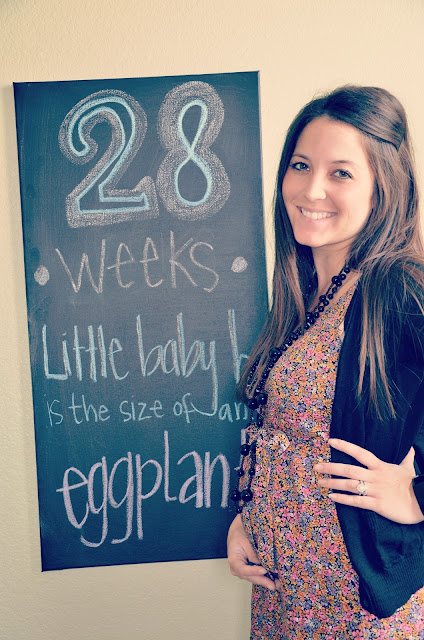 28
weeks
Little baby
is the size of an
eggplant